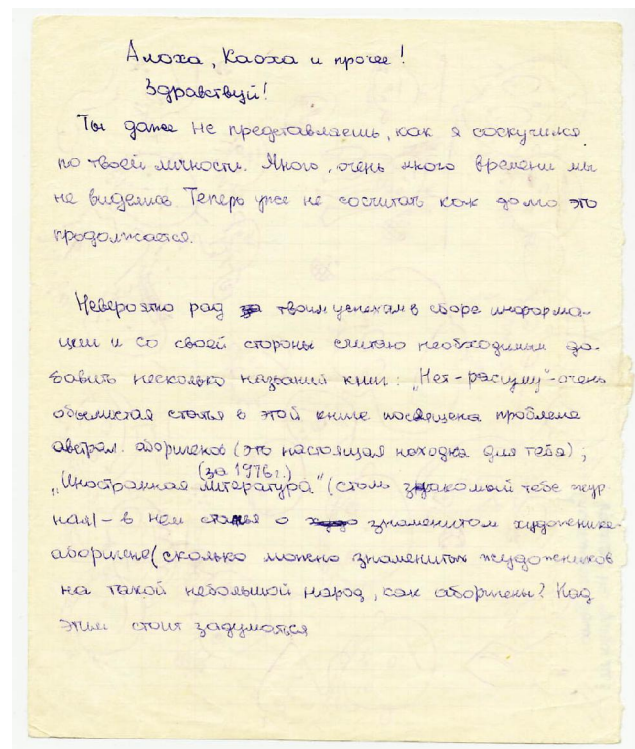 Алоха, Каоха и прочее!
Здравствуй!
Ты даже не представляешь, как я соскучился
по твоей личности. Много, очень много времени мы
не виделись. Теперь уже не сосчитать как долго это
продолжается.
Невероятно рад за твоим успехам в сборе информа-
ции и со своей стороны считаю необходимым до-
бавить несколько названий книг: „Нет - расизму" - очень
объемистая статья в этой книге посвящена проблеме
австрал. аборигенов (это настоящая находка для тебя);
(за 1976 г.)
„Иностранная литература" (столь знакомый тебе жур
нал) - в нем статья о знаменитом художнике-
аборигене (сколько можно знаменитых художников
на такой небольшой народ, как аборигены? Над
этим стоит задуматся